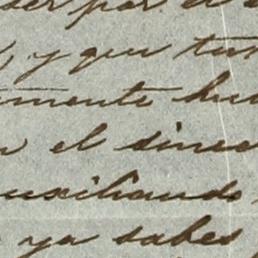 ser por el
, y que tu
amente hu
n el dine
auxiliando
ya sabes